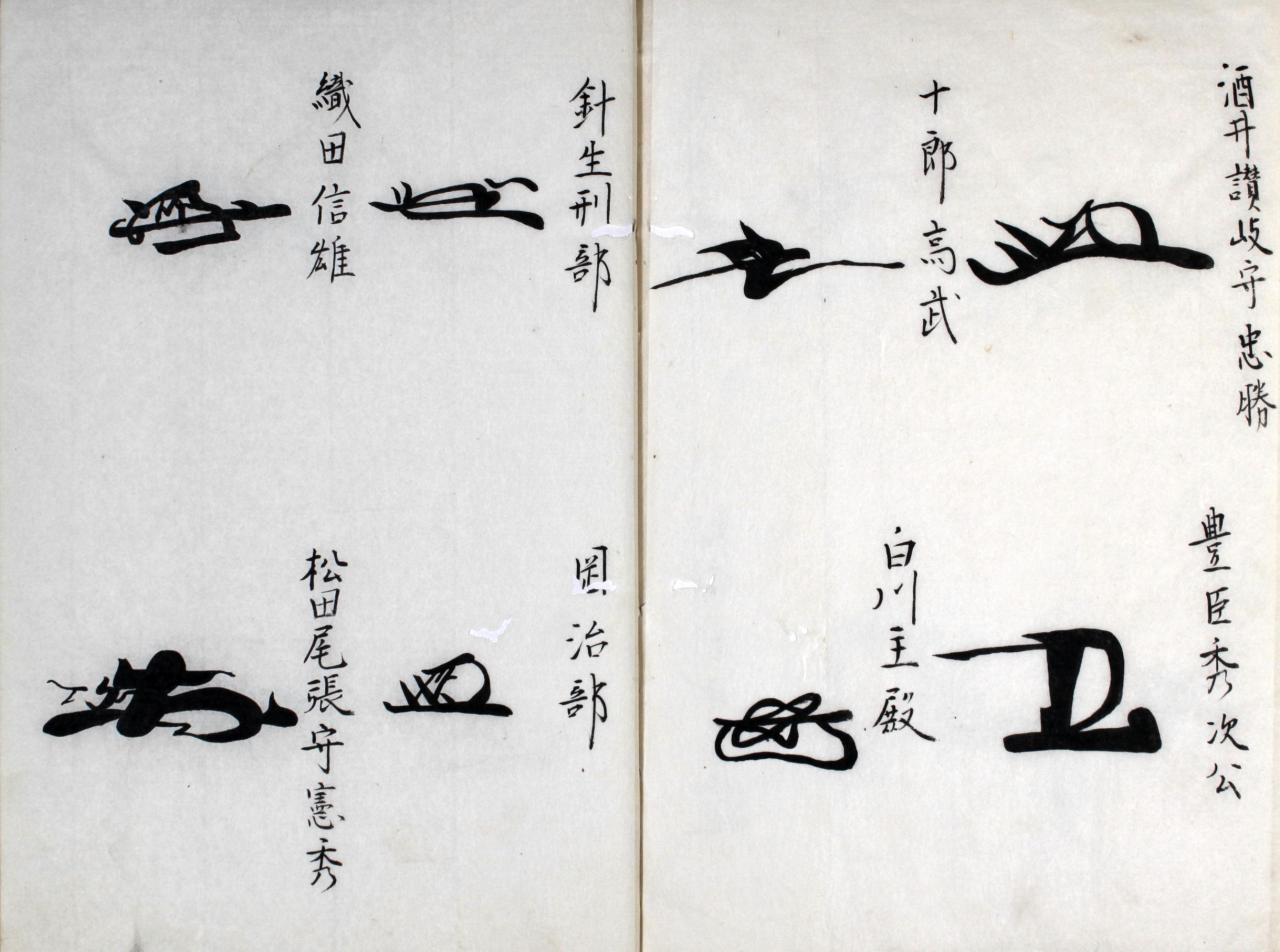 酒井讃岐守忠勝
豊臣秀次公
十郎高武
白川主殿
針生刑部
岡治部
織田信雄
松田尾張守憲秀